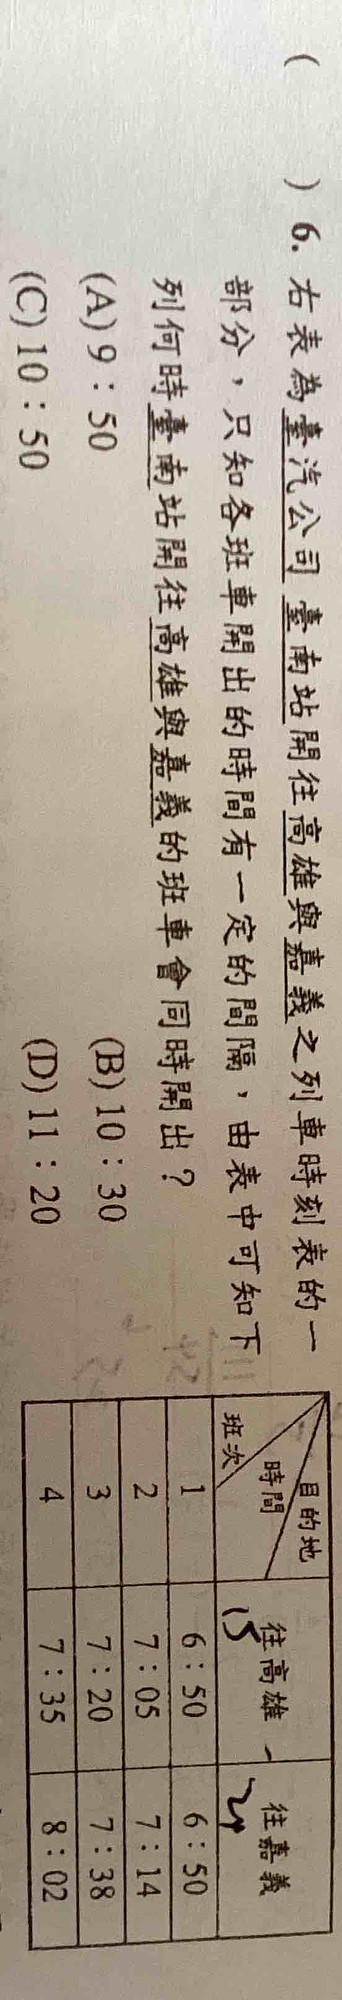 (　　) 6. 右表為臺汽公司臺南站開往高雄與嘉義之列車時刻表的一
部分，只知各班車開出的時間有一定的間隔，由表中可知下
列何時臺南站開往高雄與嘉義的班車會同時開出？
(A) 9：50　(B) 10：30
(C) 10：50　(D) 11：20
目的地
時間
班次
往高雄　往嘉義
15　24
1　6：50　6：50
2　7：05　7：14
3　7：20　7：38
4　7：35　8：02